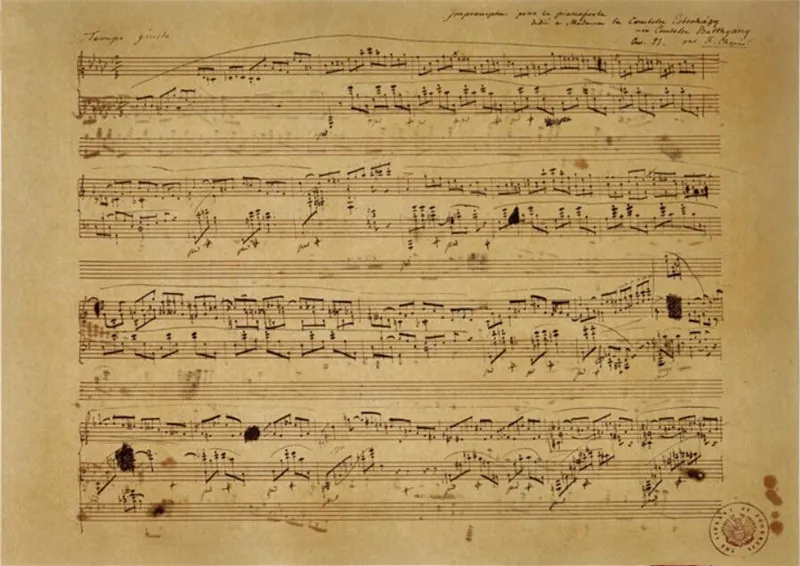 Impromptu pour le pianoforte
dédié à Madame la Comtesse Esterházy
née Comtesse Batthyany
Tempo giusto
51. par F. Chopin
THE LIBRARY OF CONGRESS